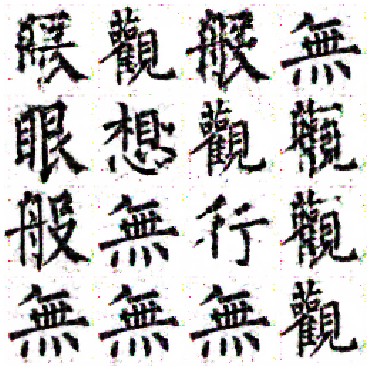 觀 無
眼 想 觀 觀
般 無 行 觀
無 無 無 觀